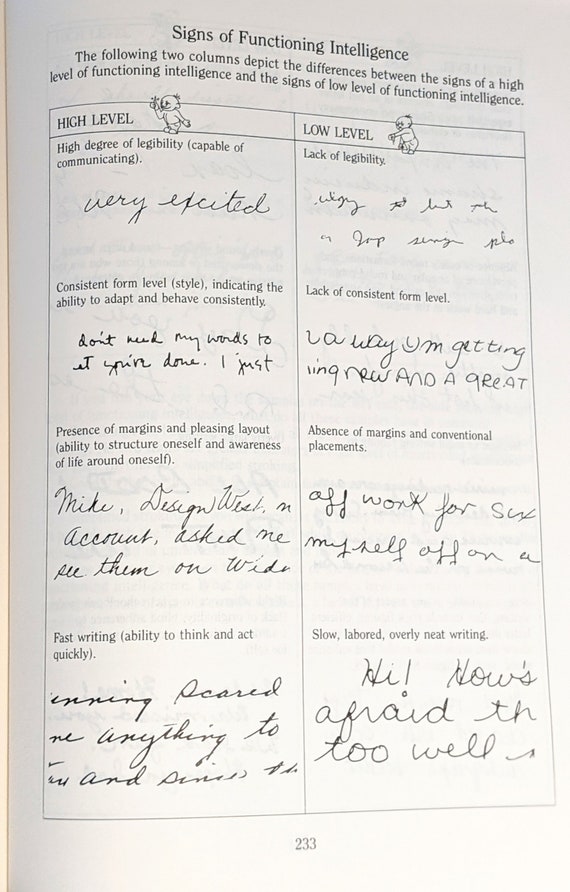 Signs of Functioning Intelligence
The following two columns depict the differences between the signs of a high
level of functioning intelligence and the signs of low level of functioning intelligence.
HIGH LEVEL
High degree of legibility (capable of
communicating).
very excited
Consistent form level (style), indicating the
ability to adapt and behave consistently.
don't need my words to
et you've done. I just
Presence of margins and pleasing layout
(ability to structure oneself and awareness
of life around oneself).
Mike, Design West, n
Account, asked me
see them on Wide
Fast writing (ability to think and act
quickly).
inning scared
ne anything to
and since
LOW LEVEL
Lack of legibility.
but
Lack of consistent form level.
a way Um getting
ing new AND A GREAT
Absence of margins and conventional
placements.
off work for six
myself off on a
Slow, labored, overly neat writing.
Hi! How's
afraid th
too well
233